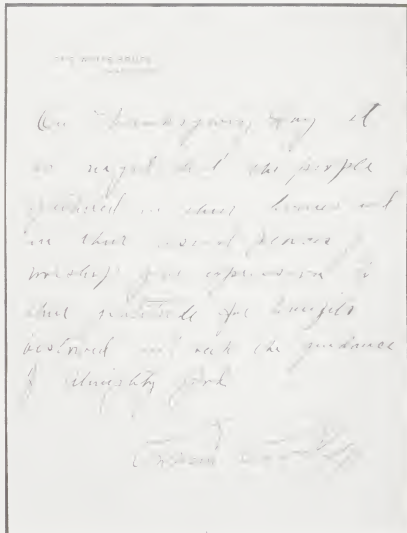 THE WHITE HOUSE
WASHINGTON
On Thanksgiving Day it
is urged that the people
gathered in their homes and
in their usual places
worship give expression
their gratitude for benefits
bestowed and ask the guidance
of Almighty God